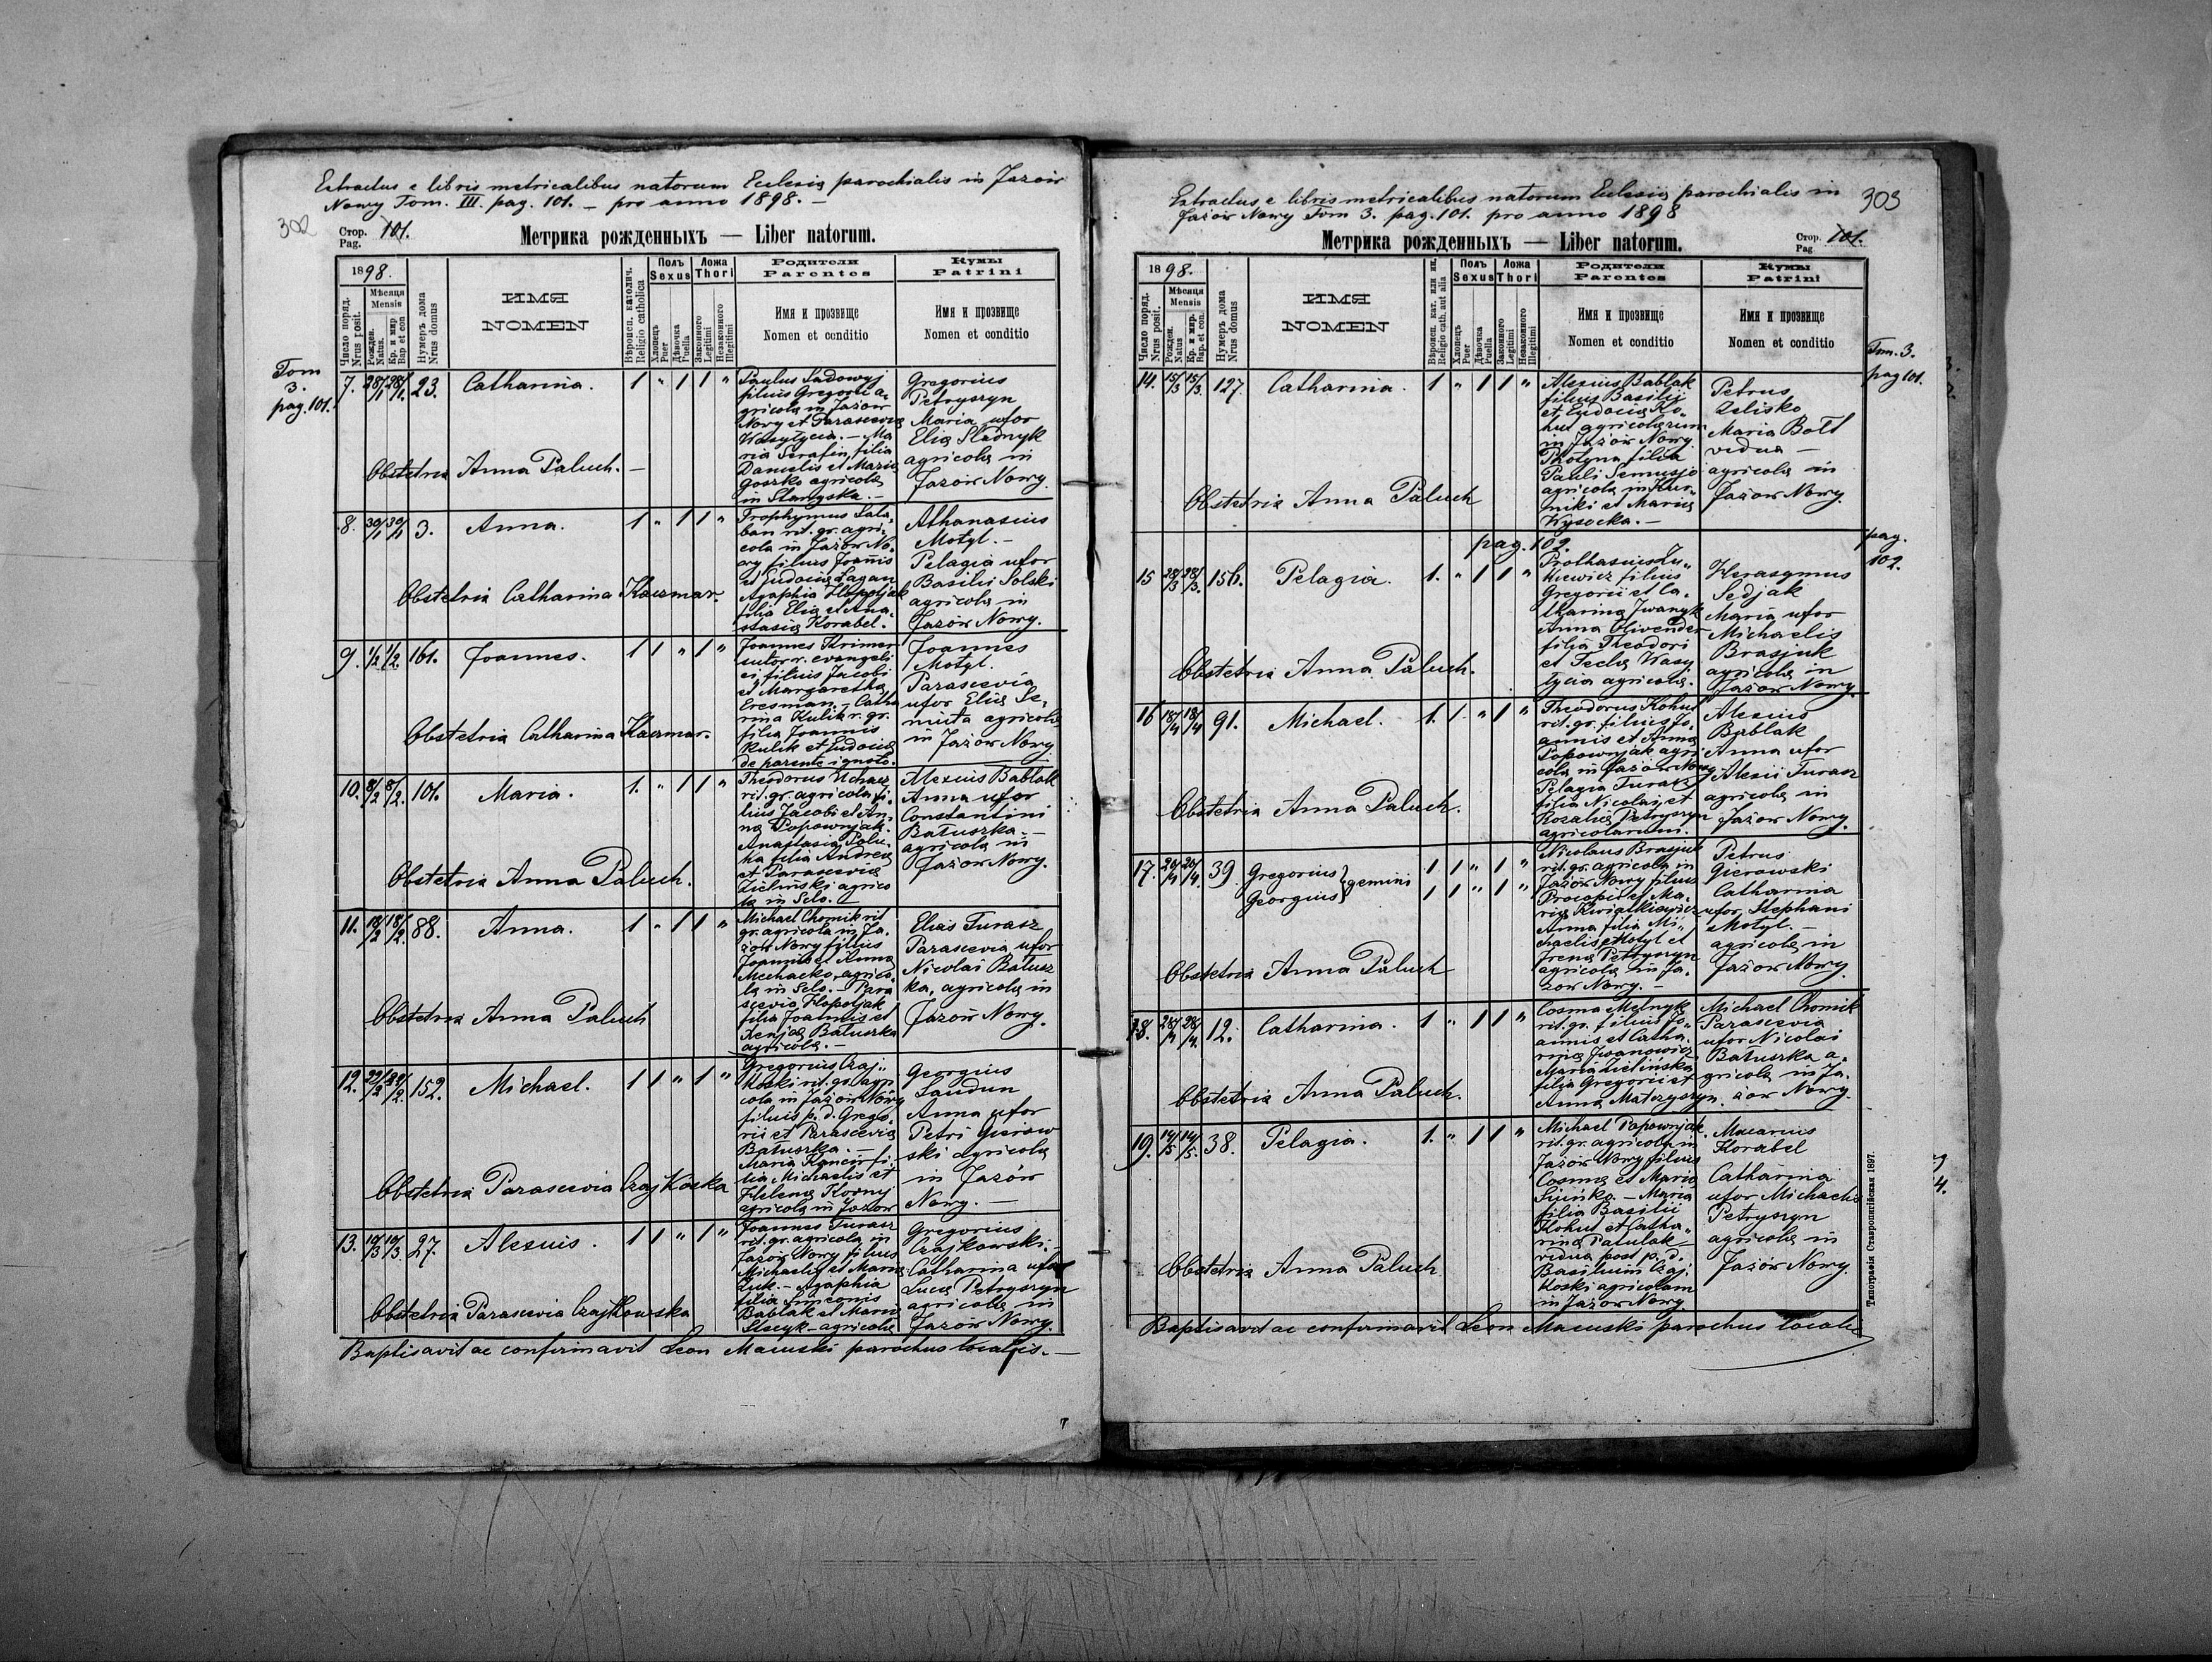 Extractus e libris metricalibus natorum Eclesię parochialis in Jazów
Nowy Tom. III. pag. 101. – pro anno 1898. –
302
Стор. 101.
Pag.
Метрика рожденныхъ — Liber natorum.
1898.
Число поряд.
Nrus posit.
Мѣсяця
Mensis
Рожден.
Natus.
Кр. и мир
Bap. et con
Нумеръ дома
Nrus domus
ИМЯ
NOMEN
Вѣроисп. католич.
Religio catholica
Полъ
Sexus
Хлопецъ
Puer
Дѣвочка
Puella
Ложа
Thori
Законного
Legitimi
Незаконного
Illegitimi
Родители
Parentes
Имя и прозвище
Nomen et conditio
Кумы
Patrini
Имя и прозвище
Nomen et conditio
Tom
3.
pag. 101.
7. 28/1 28/1. 23. Catharina. 1 „ 1 1 „
Paulus Sadowyj
filius Gregorii a-
gricola in Jazow
Nowy et Parascevię
Wasylycia. – Ma
ria Serafin, filia
Danielis et Marię
Goszko agricolę
in Starzyska. –
Gregorius
Petryszyn
Maria uxor
Elię Sladnyk
agricolę in
Jazów Nowy.
Obstetrix Anna Paluch. –
8. 30/1 30/1 3. Anna. 1 „ 1 1 „
Trophymus Bala-
ban rit. gr. agri-
cola in Jazów No-
wy filius Joannis
et Eudocię Lagan
Agaphia Hlopoljak
filia Elię et Ana-
stasię Korabel.
Athanasius
Motyl. –
Pelagia uxor
Basilii Solski
agricolę in
Jazów Nowy.
Obstetrix Catharina Kaczmar.
9. 1/2 1/2. 161. Joannes. 1 1 „ 1 „
Joannes Krimer
sutor r. evangeli
ci, filius Jacobi
et Margarethę
Eresman. – Catha
rina Kulik r. gr.
filia Joannis
Kulik et Eudocię
de parente ignoto.
Joannes
Motyl.
Parascevia
uxor Elię Se-
niuta agricolę
in Jazów Nowy
Obstetrix Catharina Kaczmar.
10. 8/2 8/2. 101. Maria. 1. „ 1 1 „
Theodorus Uchacz
rit. gr. agricola fi-
lius Jacobi et An-
nę Popownjak.
Anastasia Palu-
ka filia Andreę
et Parascevię
Zieliński agrico
lę in Selo.
Alexius Bablak
Anna uxor
Constantini
Batuszka. –
agricolę in
Jazów Nowy.
Obstetrix Anna Paluch.
11. 18/2 18/2. 88. Anna. 1 „ 1 1 „
Michael Chomik rit
gr. agricola in Ja-
zów Nowy filius
Joannis et Annę
Mechacko, agrico-
lę in Selo. – Para
scevia Hlopoljak
filia Joannis et
Xenię Batuszka
agricolę. –
Elias Turasz
Parascevia uxor
Nicolai Batusz
ka, agricolę in
Jazów Nowy.
Obstetrix Anna Paluch
12. 22/2 22/2. 152. Michael. 1 1 „ 1 „
Gregorius Czaj-
koski rit. gr. agri
cola in Jazów Nowy
filius p. d. Grego-
rii et Parascevię
Batuszka. –
Maria Kancir fi-
lia Michaelis et
Helenę Kornyj
agricolę in Jazow
Georgius
Landun
Anna uxor
Petri Gierow
ski agricolę
in Jazów
Nowy. –
Obstetrix Parascevia Czajkoska
13. 10/3 10/3. 27. Alexius. 1 1 „ 1 „
Joannes Turasz
rit. gr. agricola in
Jazów Nowy filius
Michaelis et Marię
Żuk. – Agaphia
filia Simeonis
Bablak et Marię
Slucyk – agricolę
Gregorius
Czajkowski. –
Catharina uxor
Lucę Petryszyn
agricolę in
Jazów Nowy.
Obstetrix Parascevia Czajkowska
Baptisavit ac confirmavit Leon Macuski parochus localis. –
Extractus e libris metricalibus natorum Eclesię parochialis in
Jazów Nowy Tom 3. pag. 101. pro anno 1898
303
Стор. 101.
Pag.
Метрика рожденныхъ — Liber natorum.
1898.
Число поряд.
Nrus posit.
Мѣсяця
Mensis
Рожден.
Natus
Кр. и мир.
Bap. et con.
Нумеръ дома
Nrus domus
ИМЯ
NOMEN
Вѣроисп. кат. или ин.
Religio cath. aut alia
Полъ
Sexus
Хлопецъ
Puer
Дѣвочка
Puella
Ложа
Thori
Законного
Legitimi
Незаконного
Illegitimi
Родители
Parentes
Имя и прозвище
Nomen et conditio
Кумы
Patrini
Имя и прозвище
Nomen et conditio
Tom. 3.
pag 101.
14. 15/3 15/3. 127. Catharina. 1 „ 1 1 „
Alexius Bablak
filius Basilii
et Eudocię Ko-
hut agricolarum
in Jazów Nowy.
Photyna filia
Pauli Semusjo
agricolę in Kur-
niki et Marię
Wysocka. –
Petrus
Zelisko
Maria Bołt
vidua –
agricolę in
Jazów Nowy.
Obstetrix Anna Paluch
pag. 102.
pag.
102.
15 28/3 28/3. 156. Pelagia. 1. „ 1 1 „
Prothasius Lu-
kiewicz filius
Gregorii et Ca-
tharinę Iwanyk
Anna Olivender
filia Theodori
et Teclę Wasy
lycia agricolę.
Herasymus
Sedjak
Maria uxor
Michaelis
Brasjuk
agricolę in
Jazów Nowy.
Obstetrix Anna Paluch.
16 18/4 18/4 91. Michael. 1. 1 „ 1 „
Theodorus Kohut
rit. gr. filius Jo-
annis et Annę
Popownjak agri
cola in Jazów Nowy
Pelagia Turasz
filia Nicolai et
Rosalię Petryszyn
agricolarum.
Alexius
Bablak
Anna uxor
Alexii Turasz
agricolę in
Jazów Nowy.
Obstetrix Anna Paluch.
17. 20/4 20/4. 39 Gregorius } gemini 1 1 „ 1 „
Georgius } 1 1 „ 1 „
Nicolaus Brasjuk
rit. gr. agricola in
Jazów Nowy filius
Procopii et Ma-
rię Kwiatkiewicz
Anna filia Mi-
chaelis Motyl et
Irenę Petryszyn
agricolę in Ja-
zów Nowy. –
Petrus
Gierowski
Catharina
uxor Stephani
Motyl. –
agricolę in
Jazów Nowy
Obstetrix Anna Paluch
18. 28/4 28/4. 12. Catharina. 1 „ 1 1 „
Cosma Melnyk
rit. gr. filius Jo-
annis et Catha-
rinę Iwanowicz
Maria Zielińska
filia Gregorii et
Annę Matczyszyn.
Michael Chomik
Parascevia
uxor Nicolai
Batuszka a-
gricolę in Ja-
zów Nowy.
Obstetrix Anna Paluch.
19. 14/5 14/5. 38. Pelagia. 1. „ 1 1 „
Michael Popownjak
rit. gr. agricola in
Jazów Nowy filius
Cosmę et Marię
– Maria
filia Basilii
Kohut et Catha-
rinę Patulak –
vidua post p. d.
Basilium Czaj-
koski agricolam
in Jazów Nowy.
Macarius
Korabel
Catharina
uxor Michaelis
Petryszyn
agricolę in
Jazów Nowy.
Obstetrix Anna Paluch
Baptisavit ac confirmavit Leon Macuski parochus localis
Типографія Ставропигійская 1897.